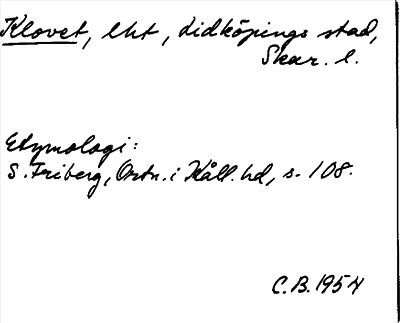 Klovet, lht, Lidköpings stad,
Skar. l.
Etymologi:
S. Friberg, Ortn. i Kåll. hd, s. 108.
C.B. 1954